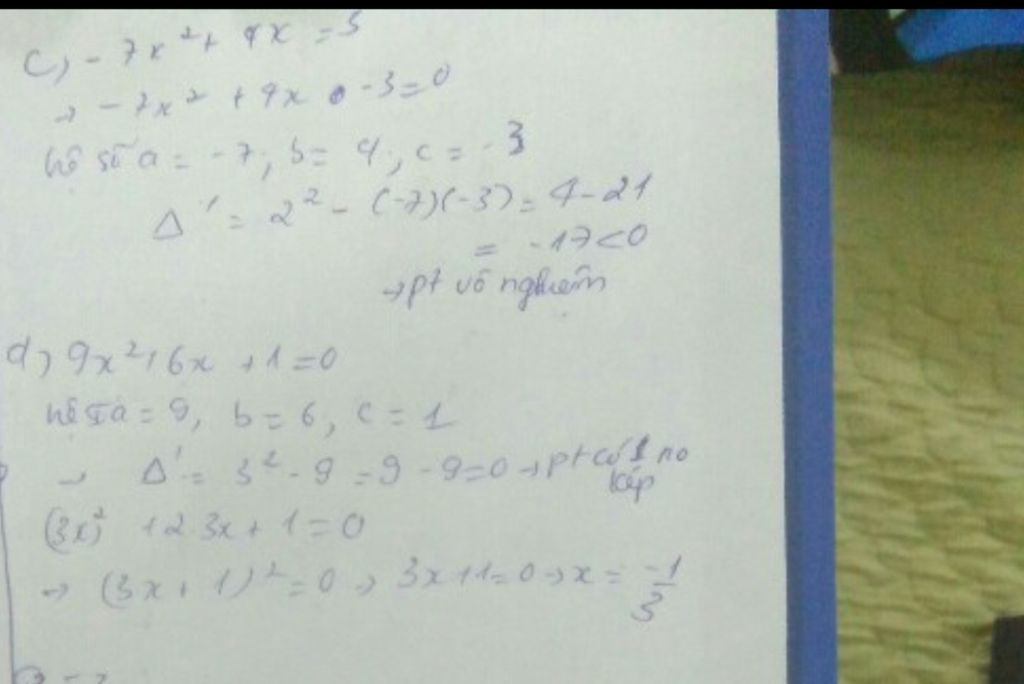 c) -7x² + 4x = 3
→ -7x² + 4x -3=0
hệ số a = -7; b = 4; c = -3
Δ' = 2² - (-7)(-3) = 4-21
= -17<0
→ pt vô nghiệm
d) 9x² + 6x + 1 = 0
hệ số a = 9, b = 6, c = 1
→ Δ' = 3² - 9 = 9 - 9 = 0 → pt có 1 no
kép
(3x)² + 2 3x + 1 = 0
→ (3x + 1)² = 0 → 3x+1=0 → x = -1/3